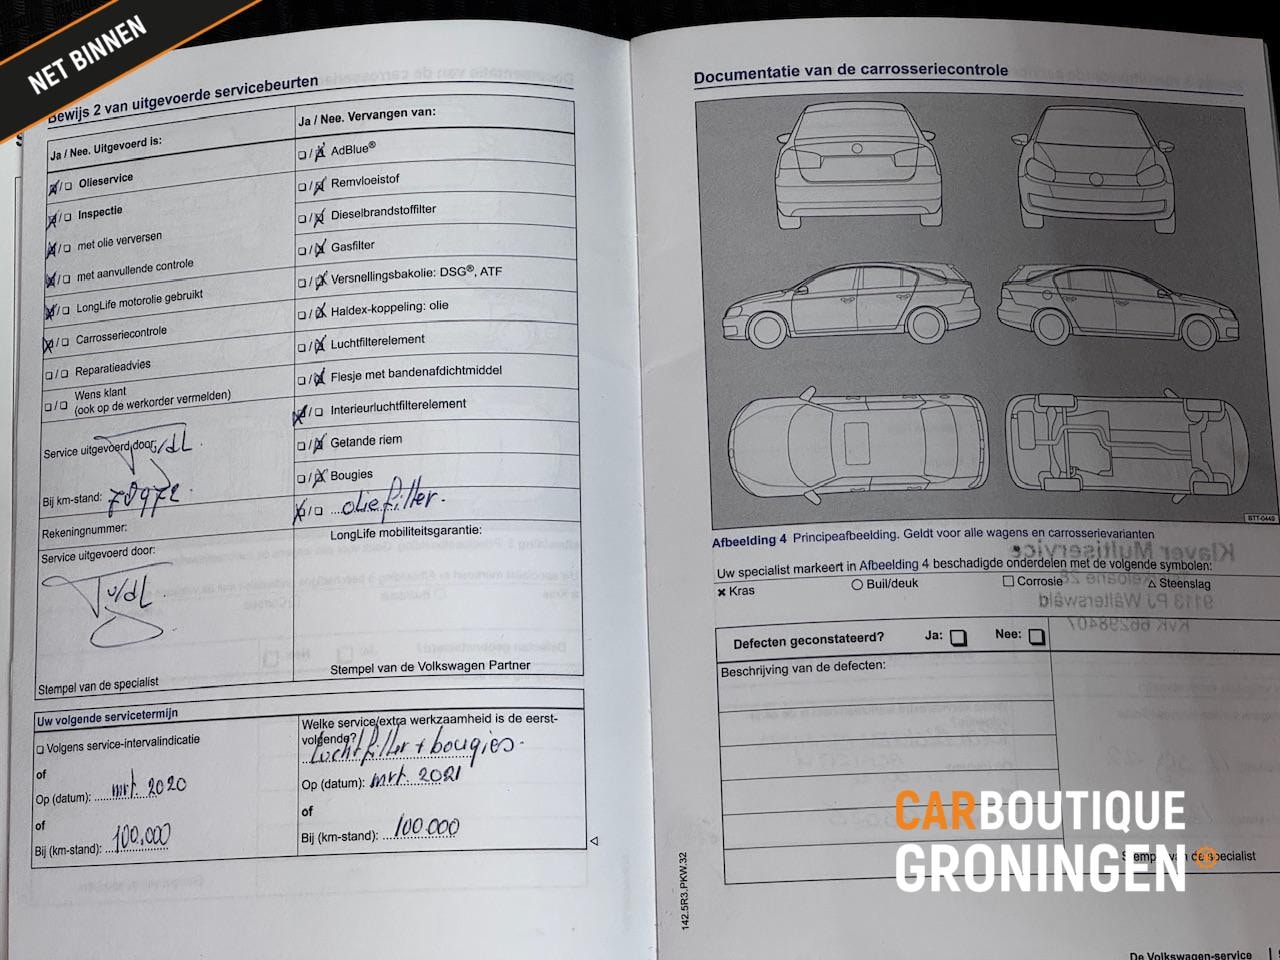 NET BINNEN
Bewijs 2 van uitgevoerde servicebeurten
Ja / Nee. Uitgevoerd is:
Olieservice
Inspectie
met olie verversen
met aanvullende controle
LongLife motorolie gebruikt
Carrosseriecontrole
Reparatieadvies
Wens klant
(ook op de werkorder vermelden)
Service uitgevoerd door:
Bij km-stand: 78972
Rekeningnummer:
Service uitgevoerd door:
Stempel van de specialist
Ja / Nee. Vervangen van:
AdBlue®
Remvloeistof
Dieselbrandstoffilter
Gasfilter
Versnellingsbakolie: DSG®, ATF
Haldex-koppeling: olie
Luchtfilterelement
Flesje met bandenafdichtmiddel
Interieurluchtfilterelement
Getande riem
Bougies
oliefilter.
LongLife mobiliteitsgarantie:
Stempel van de Volkswagen Partner
Uw volgende servicetermijn
Volgens service-intervalindicatie
of
Op (datum): mrt. 2020
of
Bij (km-stand): 100.000
Welke service/extra werkzaamheid is de eerst-
volgende?
Luchtfilter + bougies.
Op (datum): mrt. 2021
of
Bij (km-stand): 100.000
Documentatie van de carrosseriecontrole
BTT-0449
Afbeelding 4 Principeafbeelding. Geldt voor alle wagens en carrosserievarianten
Uw specialist markeert in Afbeelding 4 beschadigde onderdelen met de volgende symbolen:
Kras
Buil/deuk
Corrosie
Steenslag
Defecten geconstateerd? Ja: Nee:
Beschrijving van de defecten:
Stempel van de specialist
142.5R3.PKW.32
De Volkswagen-service
CARBOUTIQUE
GRONINGEN®